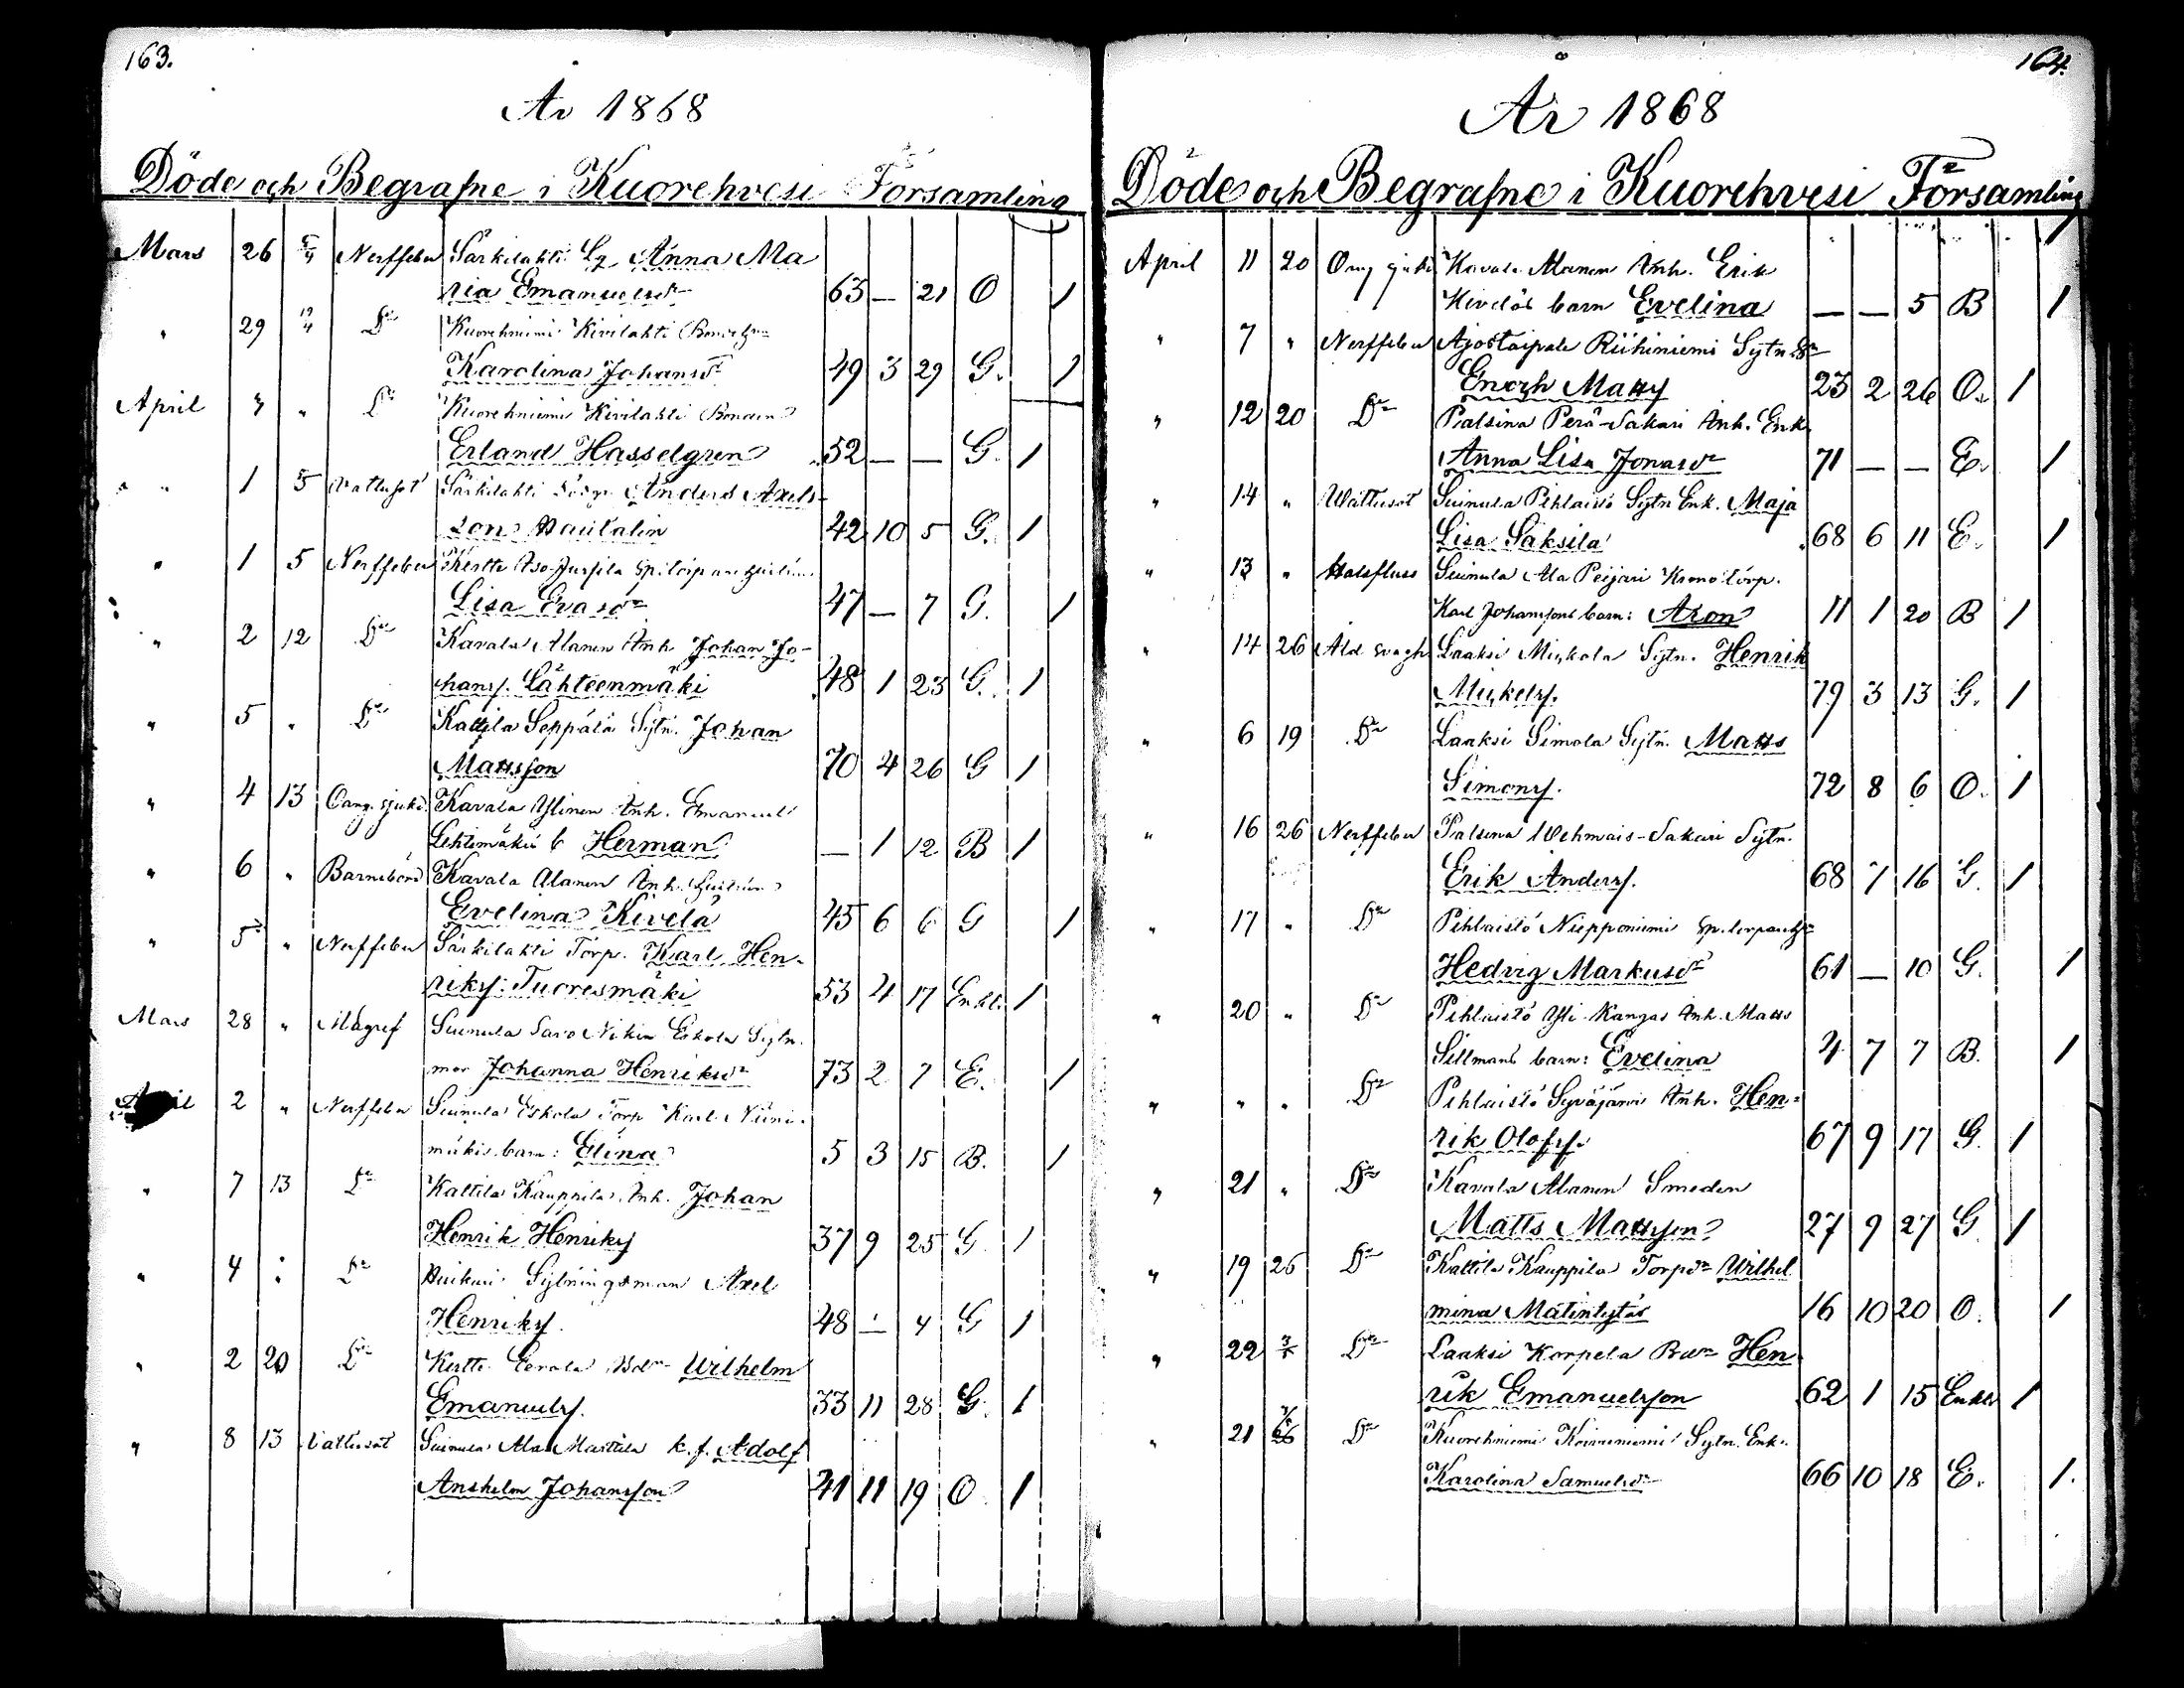 163.
År 1868
Döde och Begrafne i Kuorehvesi Församling
Mars 26 5/4 Nerffeber Särkilahti Anna Ma
ria Emanuelsdr 63 — 21 O 1
" 29 12/4 Dr Kuorehniemi Kivilahti
Karolina Johansdr 49 3 29 G. 1
April 3 " Dr Kuorehniemi Kivilahti Bonden
Erland Hasselgren 52 — — G. 1
" 1 5 Vattusot Särkilahti Anders Axels-
son Hautalin 42 10 5 G. 1
" 1 5 Nerffeber Kertte Iso-Jussila
Lisa Evasdr 47 — 7 G. 1
" 2 12 Dr Kavala Alanen Inh. Johan Jo-
hanss. Lähteenmäki 48 1 23 G. 1
" 5 " Dr Kattila Seppälä Sytn. Johan
Mattsson 70 4 26 G 1
" 4 13 Oang. sjukd. Kavala Ylinen Inh. Emanuel
Lehtimäkis b Herman — 1 12 B 1
" 6 " Barnsbörd Kavala Alanen Inh. hustrun
Evelina Kivelä 45 6 6 G 1
" 5 " Nerffeber Särkilahti Torp. Karl Hen-
rikss. Tuoresmäki 53 4 17 Enkl. 1
Mars 28 " Magref Suinula Savo Nikin Eskola Sytn.
mor Johanna Henriksdr 73 2 7 E. 1
April 2 " Nerffeber Suinula Eskola Torp Karl Niini-
mäkis barn: Elina 5 3 15 B. 1
" 7 13 Dr Kattila Kauppila Inh. Johan
Henrik Henrikss 37 9 25 G. 1
" 4 " Dr Sytningsman Axel
Henrikss. 48 — 4 G 1
" 2 20 Dr Kertte Eerola Wilhelm
Emanuelss. 33 11 28 G. 1
" 8 13 Vattusot Suinula Ala Marttila k.f. Adolf
Anshelm Johansson 41 11 19 O. 1
164.
År 1868
Döde och Begrafne i Kuorehvesi Församling
April 11 20 Oang sjukd Kavala Alanen Inh. Erik
Kiveläs barn Evelina — — 5 B 1
" 7 " Nerffeber Ajostaipale Riihiniemi Sytn.
Enoch Matts 23 2 26 O. 1
" 12 20 Dr Palsina Perä-Sakari Inh. Enk.
Anna Lisa Jonasdr 71 — — E. 1
" 14 " Wattusot Suinula Pihlaisto Sytn Enk. Maja
Lisa Säksilä 68 6 11 E. 1
" 13 " Halsfluss Suinula Ala Peijari Kronotorp.
Karl Johanssons barn: Aron 11 1 20 B 1
" 14 26 Åld. svagh Laaksi Mickola Sytn. Henrik
Mickelss. 79 3 13 G. 1
" 6 19 Dr Laaksi Simola Sytn. Matts
Simonss. 72 8 6 O. 1
" 16 26 Nerffeber Palsina Wehmais-Sakari Sytn.
Erik Anderss. 68 7 16 G. 1
" 17 " Dr Pihlaistö Niepponiemi
Hedvig Markusdr 61 — 10 G. 1
" 20 " Dr Pihlaistö Yli-Kangas Inh. Matts
Sillmans barn: Evelina 4 7 7 B. 1
" " " Dr Pihlaistö Syväjärvi Inh. Hen-
rik Olofss. 67 9 17 G. 1
" 21 " Dr Kavala Alanen Smeden
Matts Mattsson 27 9 27 G. 1
" 19 26 Dr Kattila Kauppila Torpdr Wilhel
mina Matintytär 16 10 20 O. 1
" 22 3/5 Dr Laaksi Korpela Hen
rik Emanuelsson 62 1 15 Enkl 1
" 21 Dr Kuorehniemi Koivuniemi Sytn. Enk.
Karolina Samuelsdr 66 10 18 E. 1.